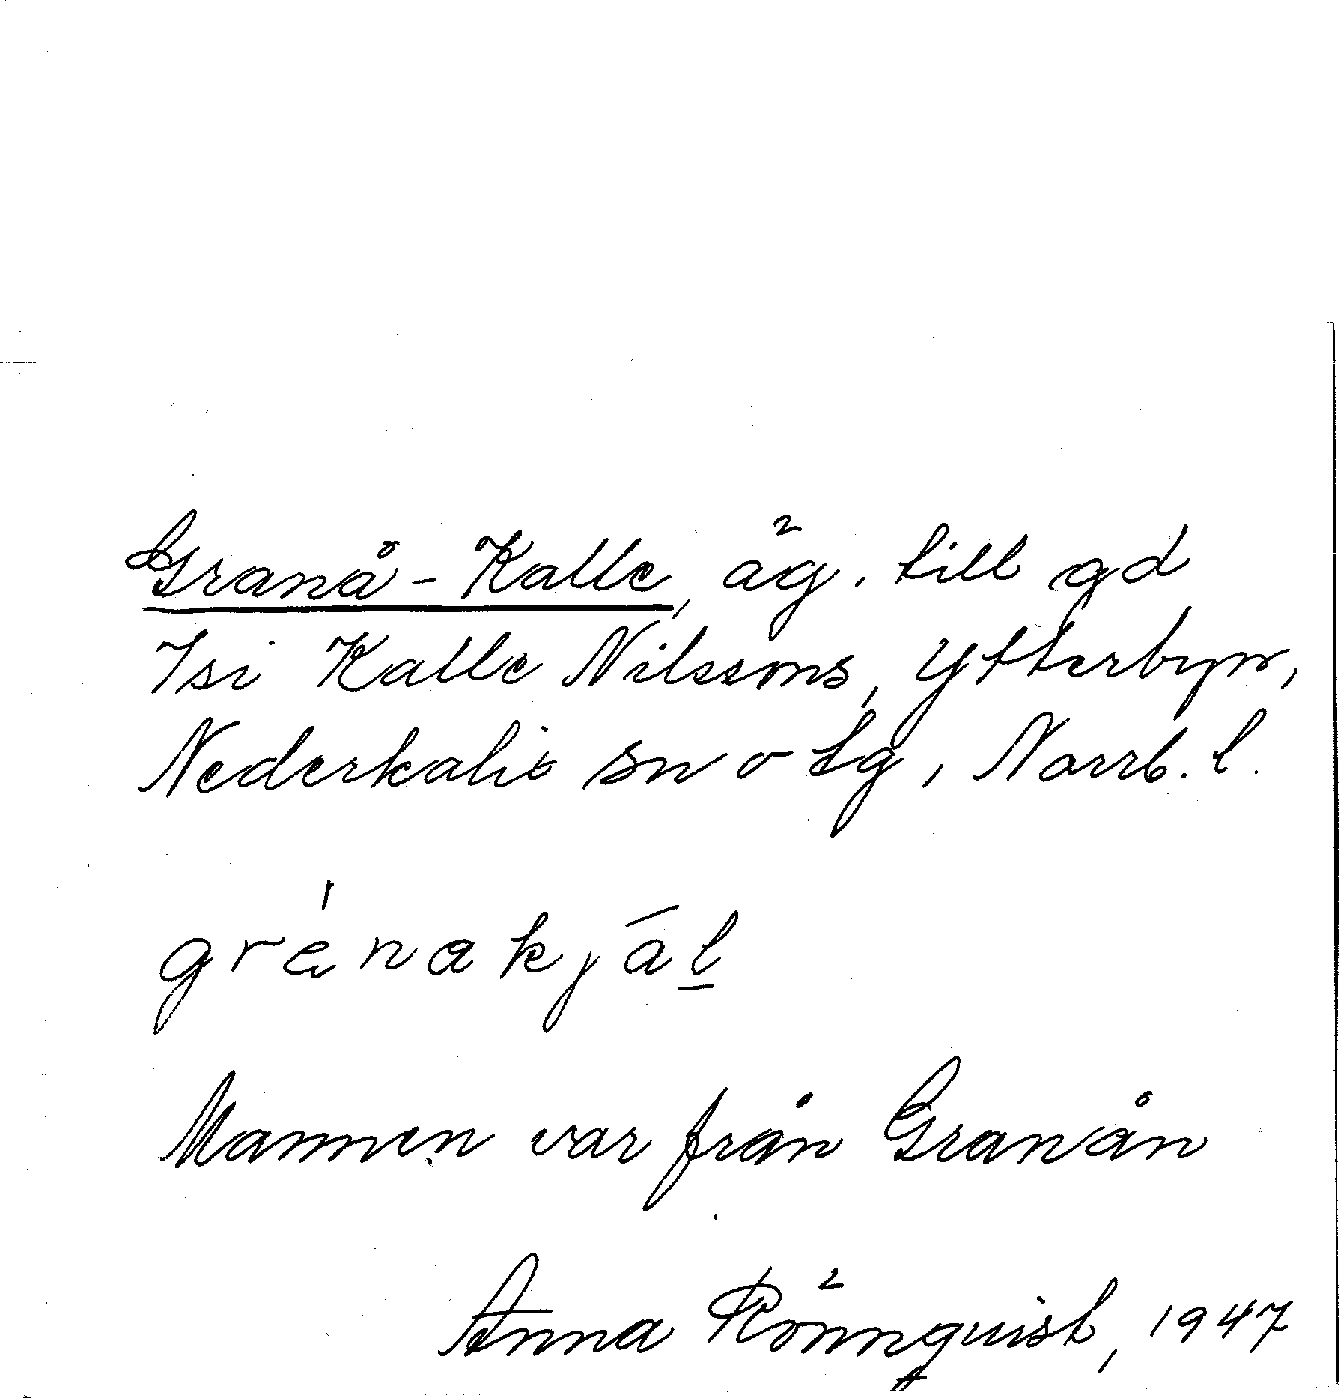 Granå-Kalle, äg. till gd
Isi Kalle Nilssons, Ytterbyn,
Nederkalix sn o tg, Norrb. l.
grénakjāl
Mannen var från Granån
Anna Rönnquist, 1947